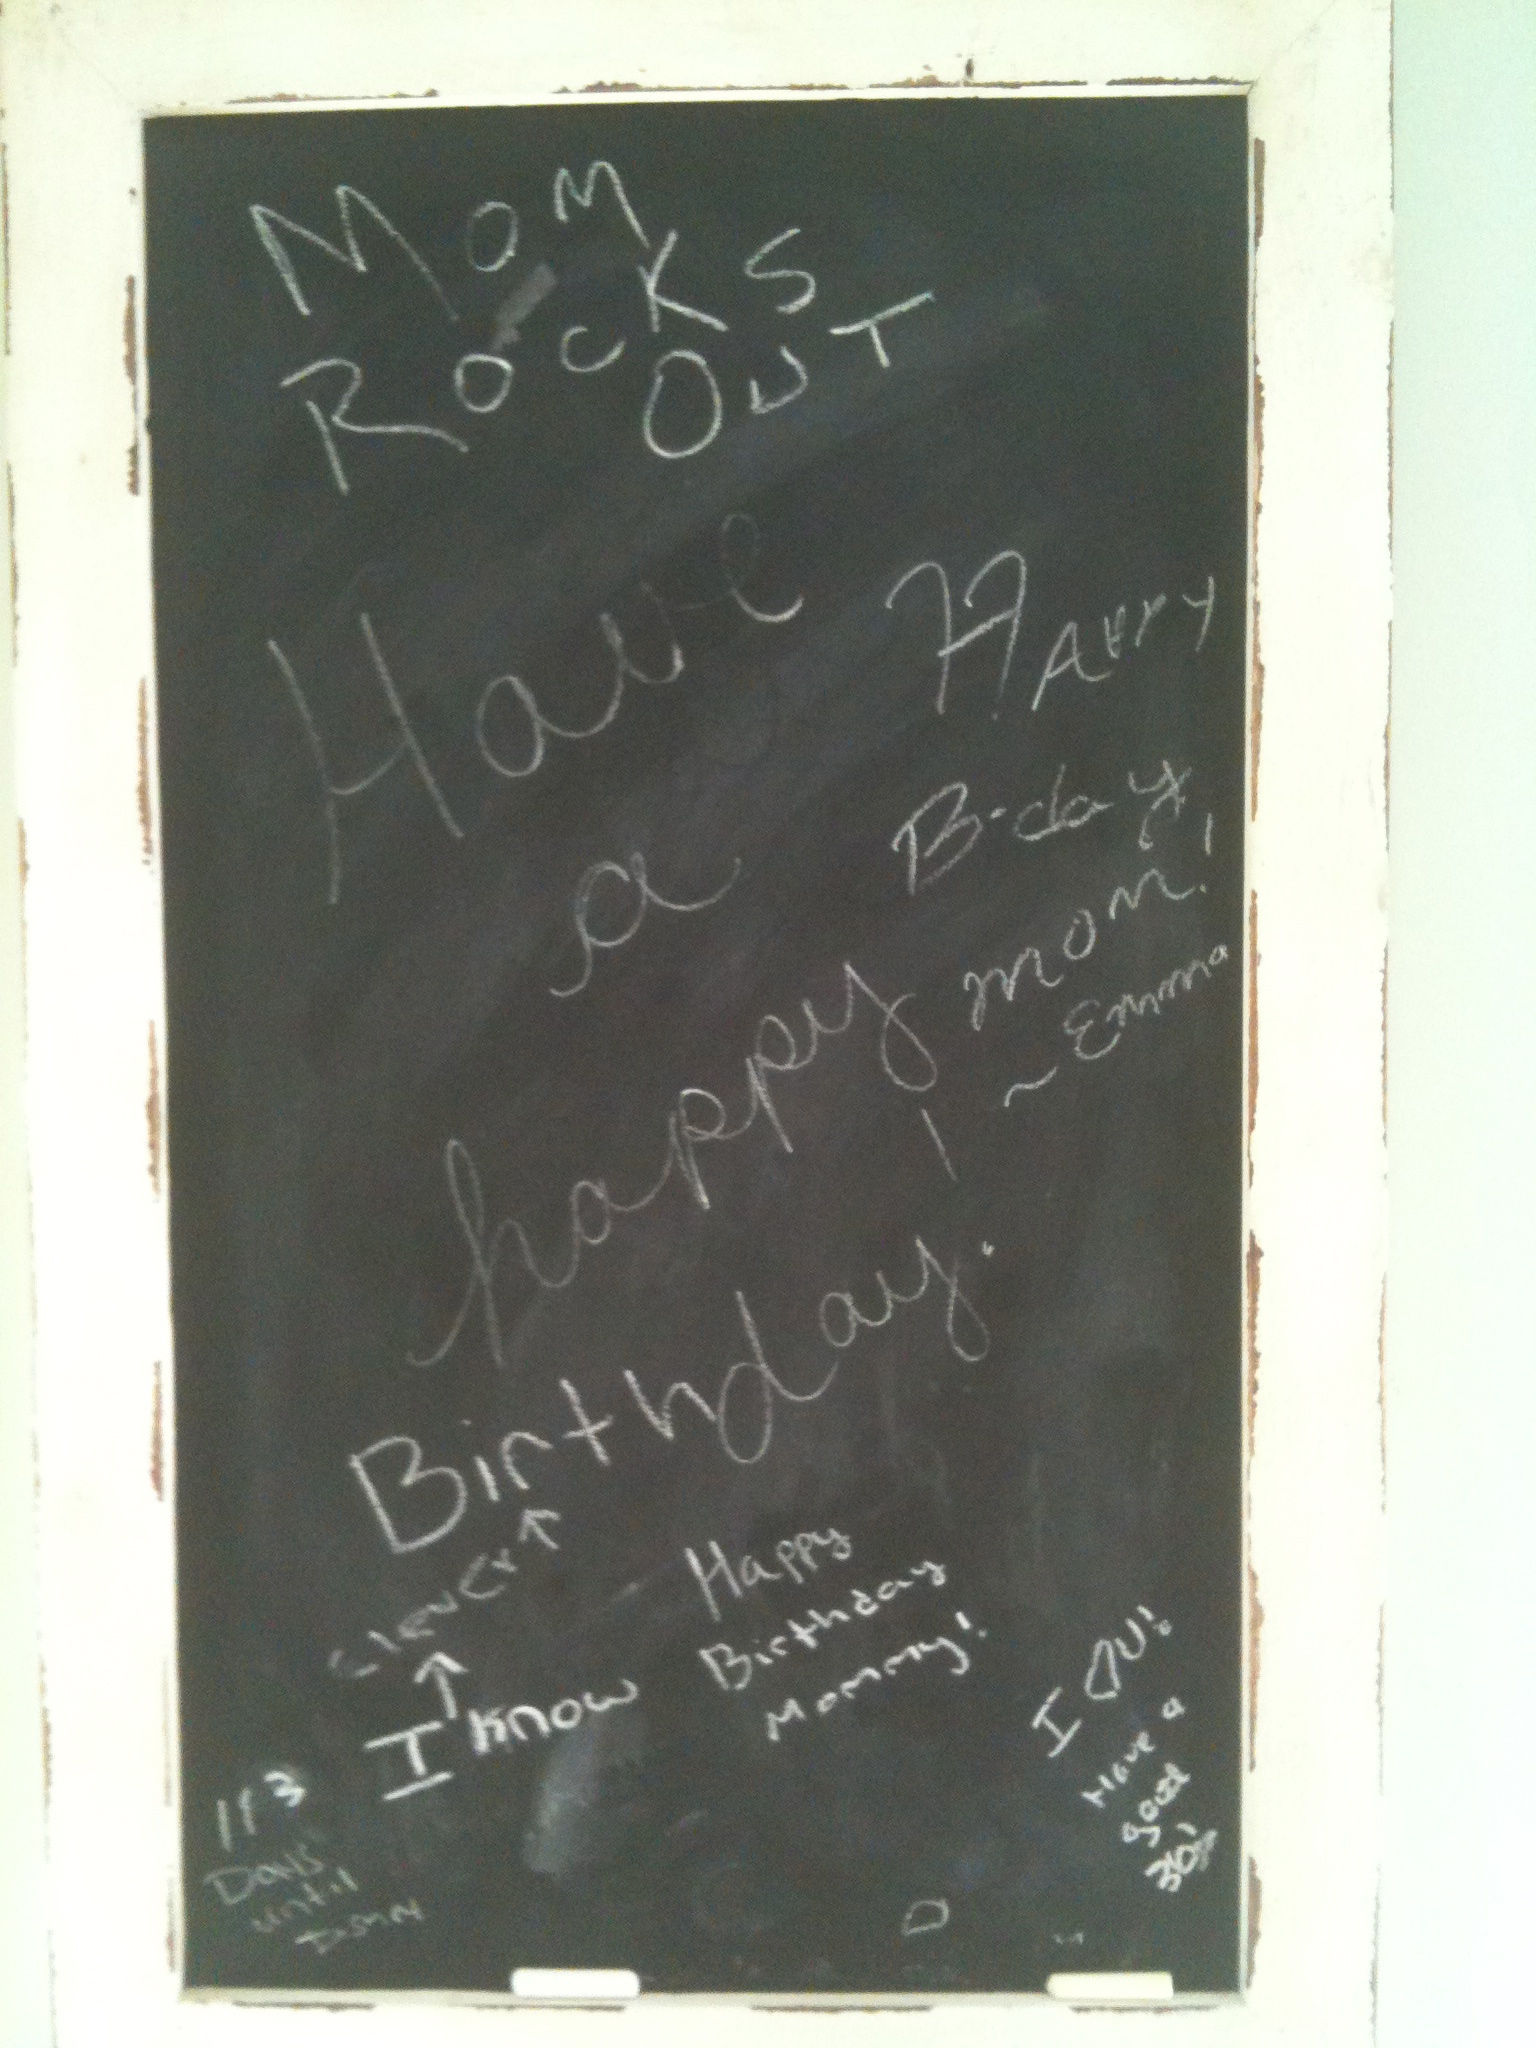 MOM
ROCKS
OUT
Have
a
happy
Birthday!
HAPPY
B-day
mom!
~Emma
clever
I know
Happy
Birthday
Mommy!
I ♡ U!
Have a
good
113
Days
until